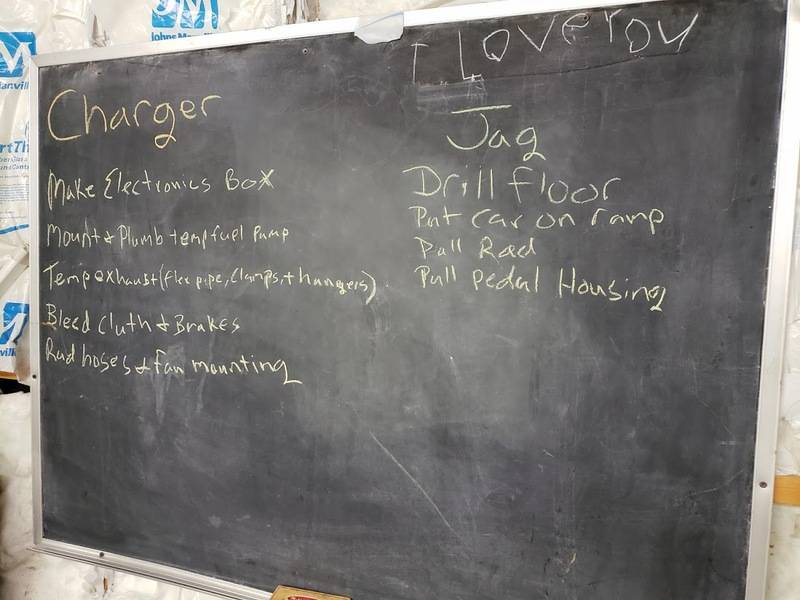 I Love You
Charger
Make Electronics Box
Mount & Plumb temp fuel Pump
Temp exhaust (flex pipe, Clamps, + hangers)
Bleed Cluth & Brakes
Rad hoses & fan mounting
Jag
Drill floor
Put car on ramp
Pull Rad
Pull pedal Housing
Johns Man